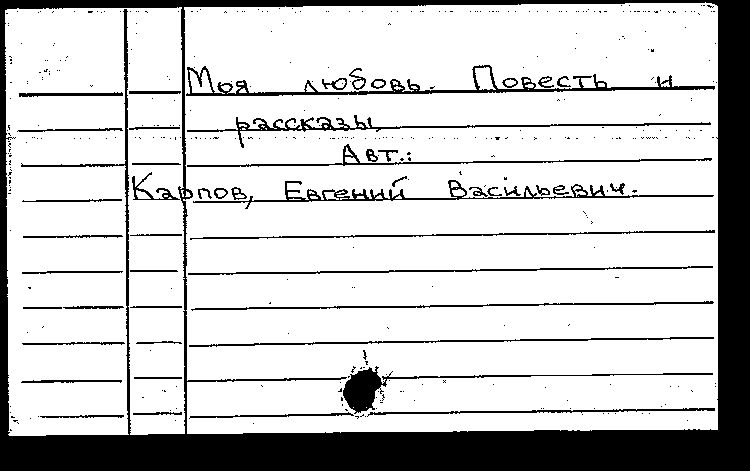 Моя любовь. Повесть и
рассказы.
Авт.:
Карпов, Евгений Васильевич.